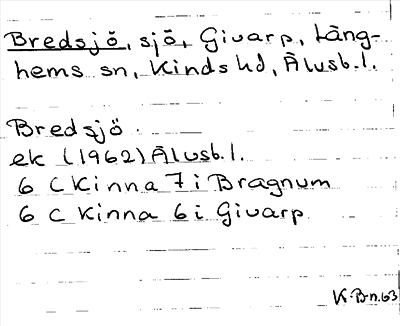 Bredsjö, sjö, Givarp, Lång-
hems sn, Kinds hd, Älvsb.l.
Bredsjö
ek (1962) Älvsb.l.
6 C Kinna 7 i Bragnum
6 C Kinna 6 i Givarp
K.Bn.63